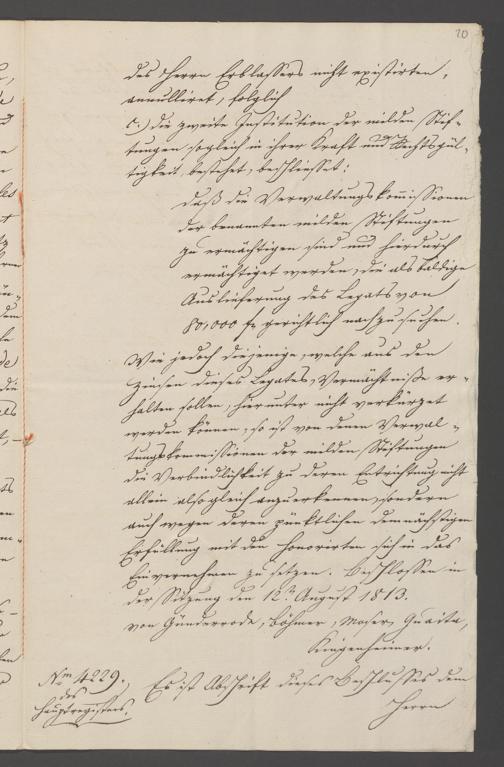 20
des Herrn Erblassers nicht existirten,
annulliret, folglich
c.) die zweite Institution der milden Stif-
tungen sogleich in ihrer Kraft und Rechtsgül-
tigkeit, bestehet, beschliesset:
daß die Verwaltungskommissionen
der benannten milden Stiftungen
zu ermächtigen sind und hierdurch
ermächtiget werden, die alsbaldige
Auslieferung des Legats von
80,000 fr gerichtlich nachzusuchen.
Wie jedoch diejenige, welche aus den
Zinsen dieses Legates, Vermächtniße er-
halten sollen, hierunter nicht verkürzet
werden können; so ist von denen Verwal-
tungskommissionen der milden Stiftungen
die Verbindlichkeit zu deren Entrichtung nicht
allein alsogleich anzuerkennen, sondern
auch wegen deren pünktlichen demnächstigen
Erfüllung mit den Honorirten sich in das
Einvernehmen zu setzen. Beschlossen in
der Sitzung den 12n August 1813.
von Günderrode, Böhmer, Moser, Guaita,
Kingenheimer.
Nrm 4229.
des
Hauptregisters.
Es ist Abschrift dieses Beschlusses dem
Herrn